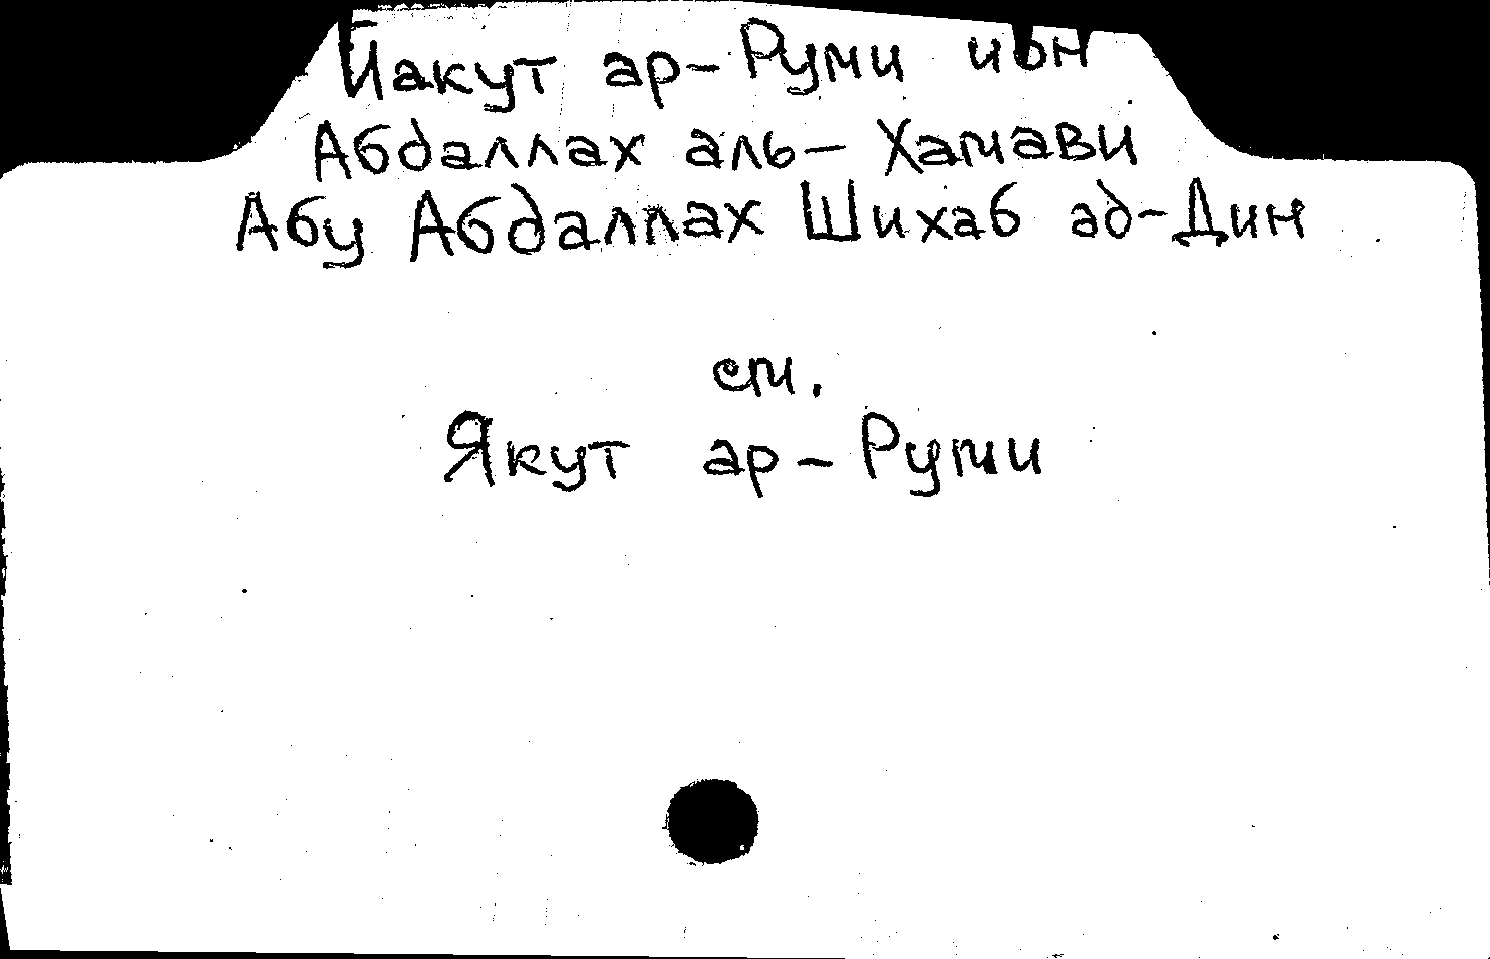 Йакут ар-Руми ибн
Абдаллах аль-Хамави
Абу Абдаллах Шихаб ад-Дин
см.
Якут ар-Руми